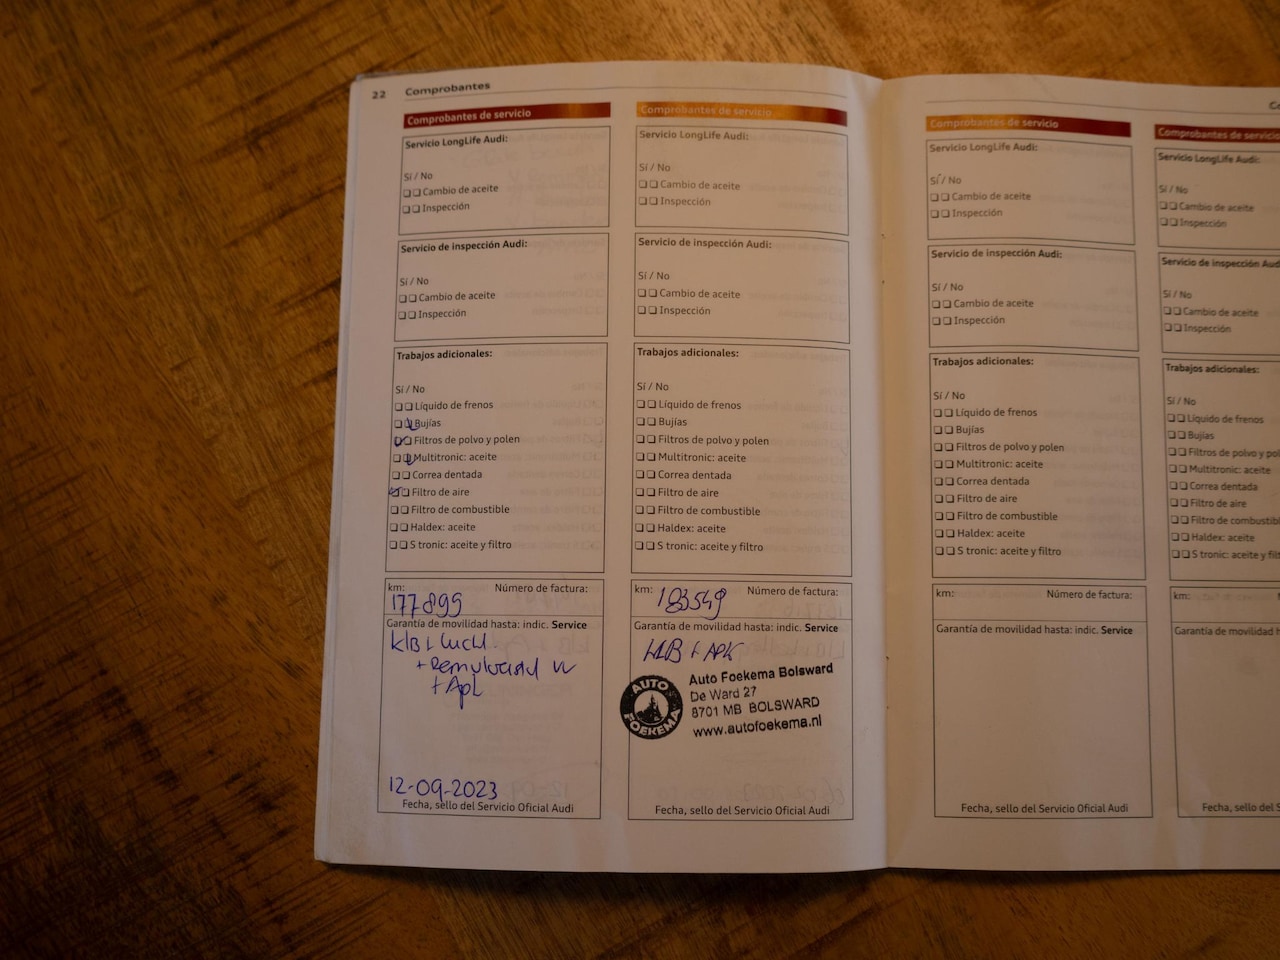 22 Comprobantes
Comprobantes de servicio
Servicio LongLife Audi:
Sí / No
Cambio de aceite
Inspección
Servicio de inspección Audi:
Sí / No
Cambio de aceite
Inspección
Trabajos adicionales:
Sí / No
Líquido de frenos
Bujías
Filtros de polvo y polen
Multitronic: aceite
Correa dentada
Filtro de aire
Filtro de combustible
Haldex: aceite
S tronic: aceite y filtro
km: Número de factura:
177899
Garantía de movilidad hasta: indic. Service
+ Apk
12-09-2023
Fecha, sello del Servicio Oficial Audi
Comprobantes de servicio
Servicio LongLife Audi:
Sí / No
Cambio de aceite
Inspección
Servicio de inspección Audi:
Sí / No
Cambio de aceite
Inspección
Trabajos adicionales:
Sí / No
Líquido de frenos
Bujías
Filtros de polvo y polen
Multitronic: aceite
Correa dentada
Filtro de aire
Filtro de combustible
Haldex: aceite
S tronic: aceite y filtro
km: Número de factura:
183549
Garantía de movilidad hasta: indic. Service
+ APK
AUTO FOEKEMA
Auto Foekema Bolsward
De Ward 27
8701 MB BOLSWARD
www.autofoekema.nl
Fecha, sello del Servicio Oficial Audi
Comprobantes de servicio
Servicio LongLife Audi:
Sí / No
Cambio de aceite
Inspección
Servicio de inspección Audi:
Sí / No
Cambio de aceite
Inspección
Trabajos adicionales:
Sí / No
Líquido de frenos
Bujías
Filtros de polvo y polen
Multitronic: aceite
Correa dentada
Filtro de aire
Filtro de combustible
Haldex: aceite
S tronic: aceite y filtro
km: Número de factura:
Garantía de movilidad hasta: indic. Service
Fecha, sello del Servicio Oficial Audi
Comprobantes de servicio
Servicio LongLife Audi:
Sí / No
Cambio de aceite
Inspección
Servicio de inspección Audi
Sí / No
Cambio de aceite
Inspección
Trabajos adicionales:
Sí / No
Líquido de frenos
Bujías
Filtros de polvo y pol
Multitronic: aceite
Correa dentada
Filtro de aire
Filtro de combustible
Haldex: aceite
S tronic: aceite y filt
km:
Garantía de movilidad h
Fecha, sello del S